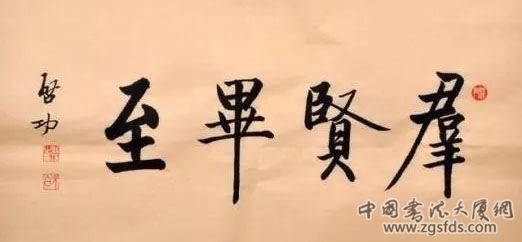 羣賢畢至
啓功
中国书法大厦网
www.zgsfds.com